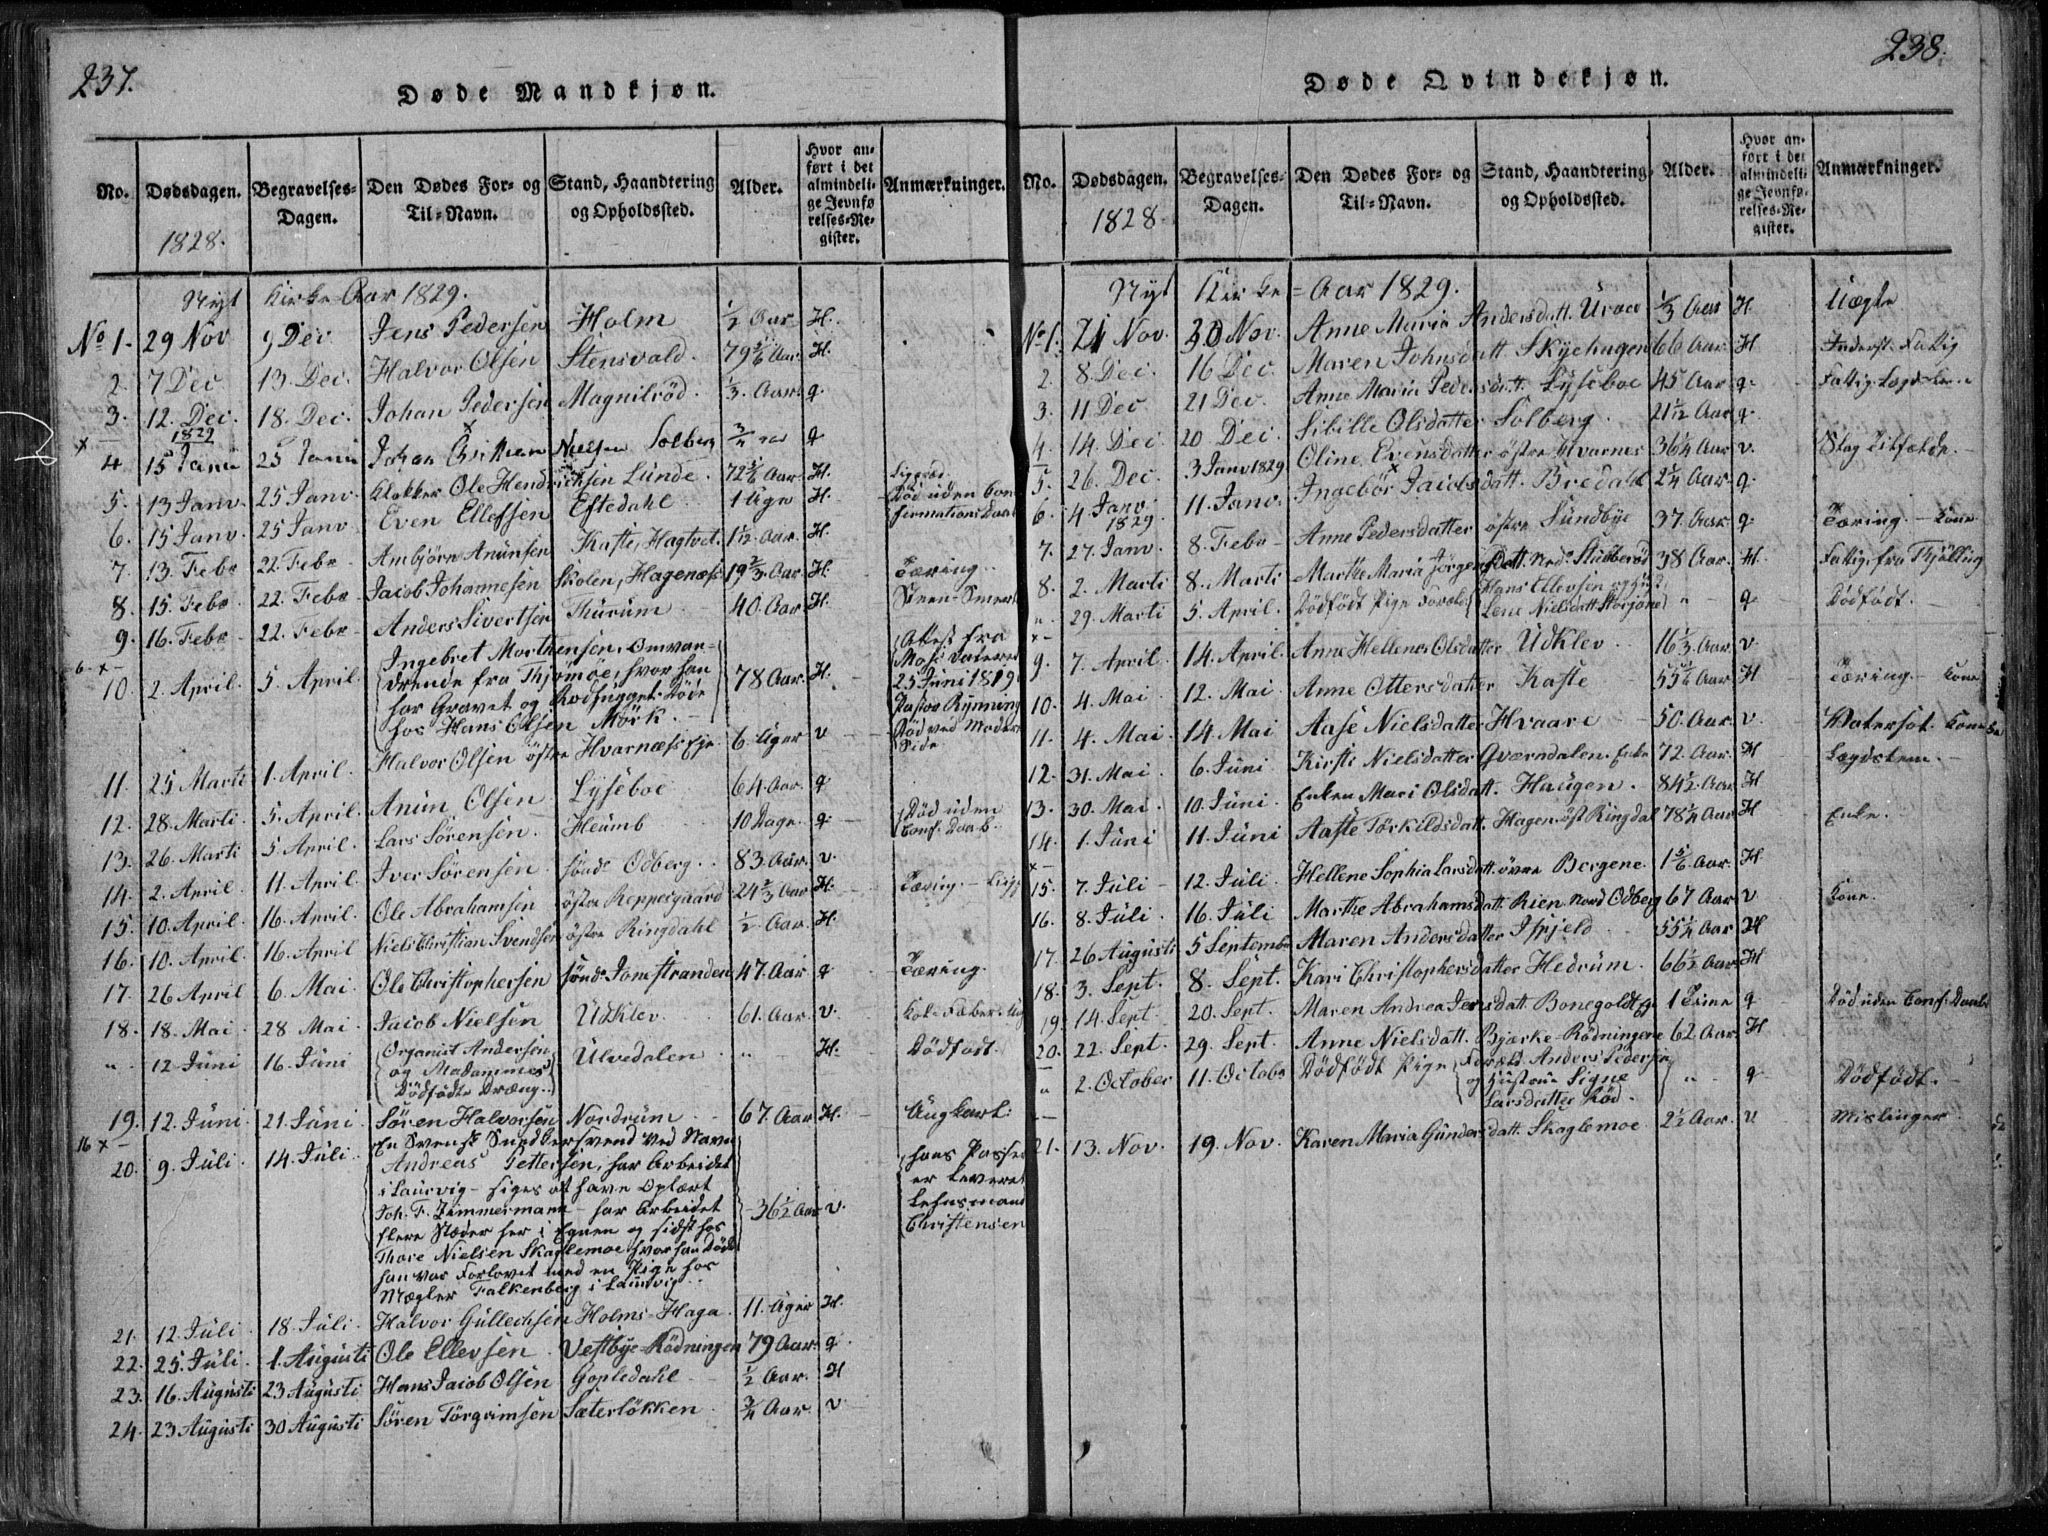 237.
Døde Mandkjøn.
No.
Dødsdagen.
1828.
Begravelses-
Dagen.
Den Dødes For- og
Til-Navn.
Stand, Haandtering
og Opholdssted.
Alder.
Hvor an-
ført i det
almindeli-
ge Jevnfø
relses-Re-
gister.
Anmærkninger.
Nyt Kirke-Aar 1829.
No 1. 29 Nov 9 Dec Jens Pedersen Holm ½ Aar H.
2. 7 Dec 13. Dec. Halvor Olsen Stensvald. 79 Aar. H.
3. 12. Dec. 18. Dec. Johan Pedersen Magnilröd. ⅓ Aar q.
1829
4 15 Janu 25 Janu Johan Christian Nielsen Solberg q
5. 13 Janv. 25 Janv. Klokker Ole Hendrichsen Lunde. 72 Aar. H.
6. 15 Janv. 25 Janv. Even Ellefsen Eftedahl 1 Uge H. Död uden Conf
firmations Daab
7. 13. Febr 22. Febr. Ambjörn Anünsen Kaste, Hagtvet. 1½ Aar. H.
8. 15. Febr 22. Febr. Jacob Johannesen Skolen, Hagenæs 19⅔ Aar H. Tæring.
9. 16. Febr 22. Febr Anders Sivertsen Thurum 40. Aar H.
10. 2. April. 5. April. Ingebret Mortensen, Omvan-
drende fra Thjömöe, hvor han
har Gravet og Rodhugget. Döde
hos Hans Olsen Mörk.
78 Aar. H. Attest fra
25 Juni 1819
Pastor Rynning
11. 25 Marti 1. April. Halvor Olsen östre Hvarnæs Eje 6 Uger v Död ved Moders
Side
12. 28. Marti. 5. April. Anün Olsen Lyseboe 64. Aar. q
13. 26. Marti 5 April. Lars Sörensen. Heumb 10 Dage. q. Död uden
Conf. Daab.
14. 2. April. 11 April. Iver Sörensen sönde Odberg. 83. Aar. v.
15. 10. April. 16. April. Ole Abrahamsen östre Reppesgaard 24⅔ Aar H. Tæring.
16. 10. April. 16. April Niels Christian Svendsen östre Ringdahl ½ Aar. H.
17. 26 April 6. Mai. Ole Christophersen sönd. Jomstranden 47. Aar q Tæring.
18. 18. Mai. 28 Mai. Jacob Nielsen Udklev. 61. Aar. v.
" 12 Juni 16. Juni Organist Andersen
og Madammes
Dödfödte Dræng.
Ulvedalen " H. Dödfödt.
19. 12. Juni. 21. Juni Sören Halvorsen Nordrum 67. Aar H.
20. 9. Juli. 14. Juli. En Svensk Snedkersvend ved Navn
Andreas Pettersen, har Arbeidet
i Laurvig - siges at have Oplært
Joh. F. Zimmermann - har Arbeidet
flere Stæder her i Egnen og sidst hos
Thore Nielsen Skaglemoe, hvor han Döde
han var Forlovet med en Pige hos
Mægler Falkenberg i Laurvig.
36½ Aar v. hans Passer
er leveret
Lehnsmand
Christensen
21. 12. Juli. 18. Juli. Halvor Gullechsen Holms-Haga. 11. Uger H.
22. 25. Juli. 1. Augusti Ole Ellevsen Vestbye-Rödningen 79 Aar. q.
23. 16. Augusti 23 Augusti Hans Jacob Olsen Gopledahl ½ Aar. H
24. 23 Augusti 30 Augusti Sören Torgrimsen Sæterlökken. ¾ Aar. v
238.
Døde Qvindekjøn.
No.
Dødsdagen.
1828
Begravelses-
Dagen.
Den Dødes For- og
Til-Navn.
Stand, Haandtering
og Opholdssted.
Alder.
Hvor an-
ført i det
almindeli-
ge Jevnfø-
relses-Re-
gister.
Anmærkninger.
Nyt Kirke-Aar 1829.
No 1. 21 Nov. 30 Nov. Anne Maria Andersdatt. Uraa ⅓ Aar H Uægte
2. 8. Dec. 16 Dec. Maren Johnsdatt Skychagen 66 Aar. H Inderst. Fattig
3. 11 Dec 21 Dec. Anne Maria Pedersdatt. Lyseboe 45 Aar. q.
4. 14. Dec. 20 Dec. Sibille Olsdatter Solberg. 21½ Aar q.
5. 26. Dec. 3 Janv 1829 Oline Evensdatter östre Hvarnes 36¼ Aar v. Slag tilfælde.
6. 4 Janv. 1829. 11. Janv. Ingebor Jacobsdatt. Bredahl 2¼ Aar. q.
7. 27. Janv. 8. Febr Anne Pedersdatter östre Sundbye 37. Aar. q. Tæring. - Kone
8. 2. Marti 8. Marti Marthe Maria Jörgensdatt. ned. Stubberöd 38 Aar. H. Fattig, fra Thjölling
" 29. Marti 5. April. Dödfödt Pige Foræld. Hans Ellevsen
Lene Nielsdatt " q. Dödfödt.
9. 7. April. 14. April. Anne Hellene Olsdatter Udklev 16⅓ Aar. v
10. 4. Mai. 12. Mai. Anne Ottersdatter Kaste 55 Aar. H Tæring. - Kone
11. 4. Mai. 14. Mai Aase Nielsdatter Hvaare 50. Aar. v. Watersot. Kone
12. 31. Mai. 6. Juni. Kirsti Nielsdatter Qværndalen. Enke 72. Aar. H Legdslem.
13. 30. Mai. 10. Juni. Enken Mari Olsdatt. Haugen. 84½ Aar. H
14. 1. Juni 11. Juni Aaste Torkildsdatt. Hagen. öst Ringdal 78¼ Aar H Enke.
15. 7. Juli 12. Juli. Hellene Sophia Larsdatt. övre Bergene 1⅚ Aar. H
16. 8. Juli. 16. Juli Marthe Abrahamsdatt. Rien. nord Odberg 67 Aar v Kone.
17. 26 Augusti 5 Septembr Maren Andersdatter Isfjeld 55¼ Aar H
18. 3. Sept. 8. Sept. Kari Christophersdatter Hedrum. 66½ Aar H
19. 14. Sept. 20. Sept. Maren Andrea Jensdatt. Bonegoldt Ej. 1 Time q Död uden Conf. Daab
20. 22. Sept. 29. Sept. Anne Nielsdatt. Bjærke-Rödningene 62 Aar. H
" 2. October 11. Octobr Dödfödt Pige Foræld. Anders Pedersen
og Hustrue Signe
Larsdatter Röd.
" q Dödfödt.
21. 13. Nov. 19. Nov. Karen Maria Gundersdatt. Skaglemoe 2½ Aar. v Mislinger